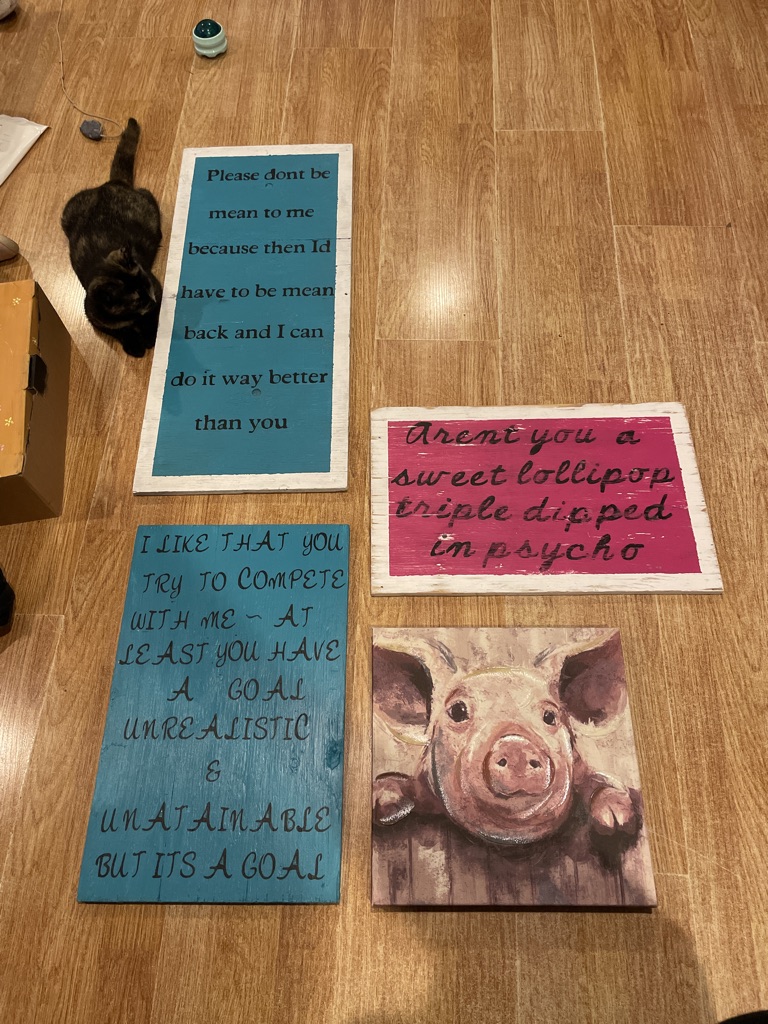 Please dont be
mean to me
because then Id
have to be mean
back and I can
do it way better
than you
Arent you a
sweet lollipop
triple dipped
in psycho
I LIKE THAT YOU
TRY TO COMPETE
WITH ME ~ AT
LEAST YOU HAVE
A GOAL
UNREALISTIC
&
UNATAINABLE
BUT ITS A GOAL